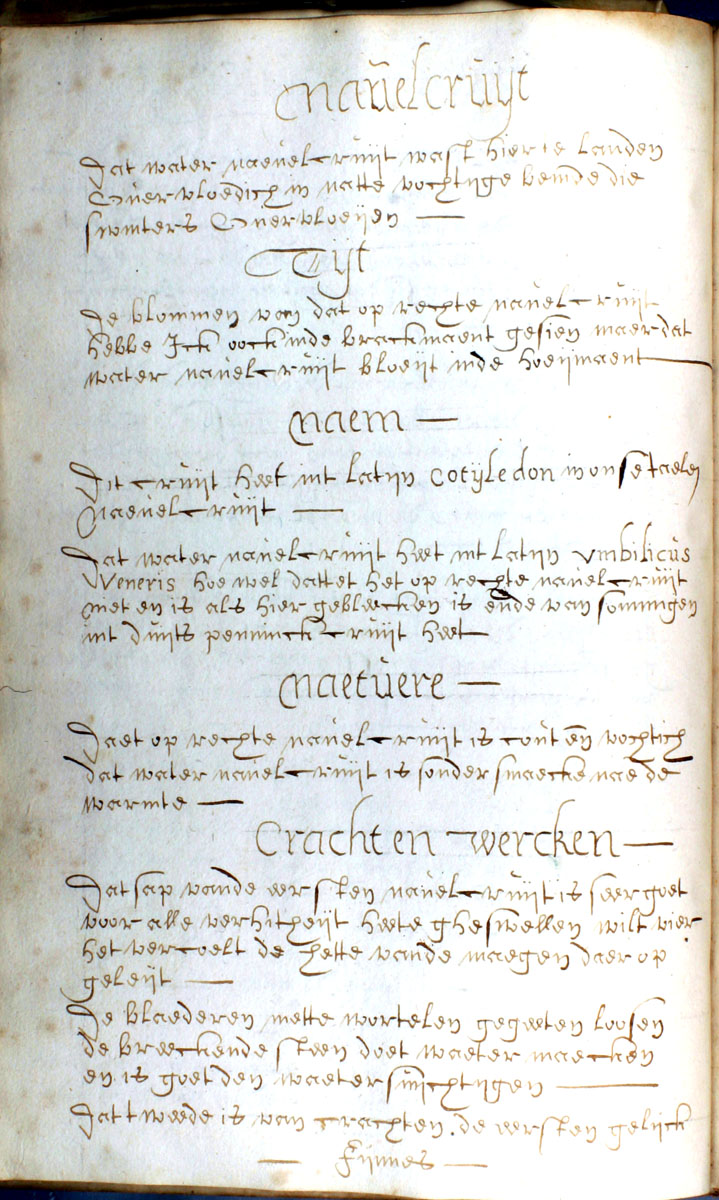 Navelcruijt
Dat water naevelcruijt wast hier te landen
Overvloedich in natte vochtijge bemde die
swinters Overvloeijen —
Tijt
De blommen van dat op rechte navelcruijt
hebbe Ick oock inde brackmaent gesien maer dat
water navelcruijt bloeijt inde hoeijmaent
Naem —
Dit cruijt heet int Latijn Cotijledon in onse taelen
Naevelcruijt —
Dat water navelcruijt heet int Latijn Vmbilicus
Veneris hoe wel dattet het op rechte navelcruijt
niet en is als hier gebleecken is ende van sommigen
int duits penninckcruijt heet
Naetuere —
Daet op rechte navelcruijt is cout en vochtich
dat water navelcruijt is sonder smaecke nae de
warmte —
Cracht en wercken —
Dat sap vande eersten navelcruijt is seer goet
voor alle verhitheijt heete gheswellen wilt vier
het vercoelt de hette vande maegen daer op
geleijt —
De blaederen mette wortelen gegeeten loosen
de breeckende steen doet waeter maecken
en is goet den waetersuichtijgen —
Dat tweede is van crachten de eersten gelijck
— Fijnnes —